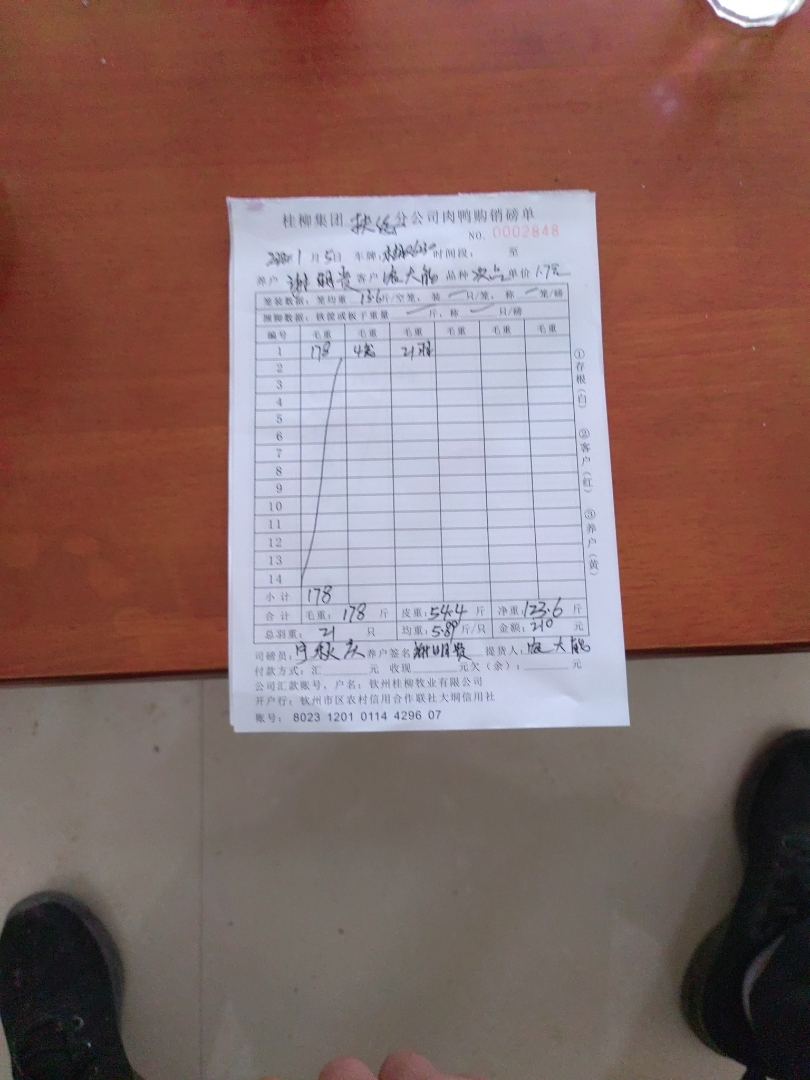 桂柳集团扶绥分公司肉鸭购销磅单
NO. 0002848
1月5日 车牌: 时间段: 至
养户 谢明贵 客户 大能 品种 次品 单价 1.7元
笼装数据: 笼均重 13.6斤/空笼, 装 只/笼, 称 笼/磅
捆脚数据: 铁筐或板子重量 斤, 称 只/磅
编号 毛重 毛重 毛重 毛重 毛重 毛重
1 178 4笼 21羽
2
3
4
5
6
7
8
9
10
11
12
13
14
小计 178
合计 毛重: 178 斤 皮重: 54.4 斤 净重: 123.6 斤
总羽重: 21 只 均重: 5.89 斤/只 金额: 210 元
司磅员: 养户签名 谢明贵 提货人: 大能
付款方式: 汇 元 收现 元欠(余): 元
公司汇款账号、户名: 钦州桂柳牧业有限公司
开户行: 钦州市区农村信用合作联社大垌信用社
账号: 8023 1201 0114 4296 07
①存根(白) ②客户(红) ③养户(黄)